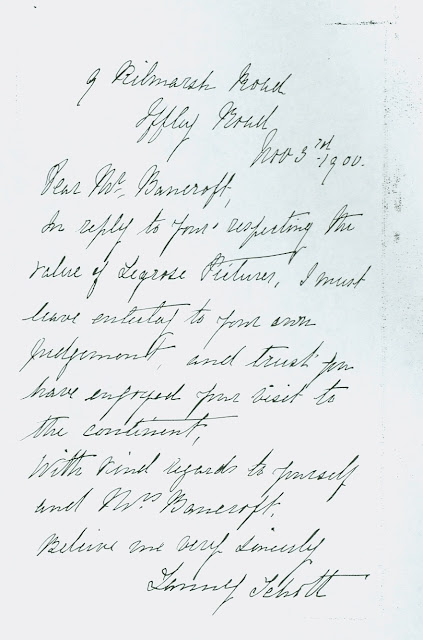 9 Kilmarsh Road
Iffley Road
Nov 3rd 1900.
Dear Mr. Bancroft,
In reply to yours respecting the
value of Pictures, I must
leave entirely to your own
judgement, and trust you
have enjoyed your visit to
the continent,
With kind regards to yourself
and Mrs Bancroft.
Believe me very sincerly
Fanny Schott